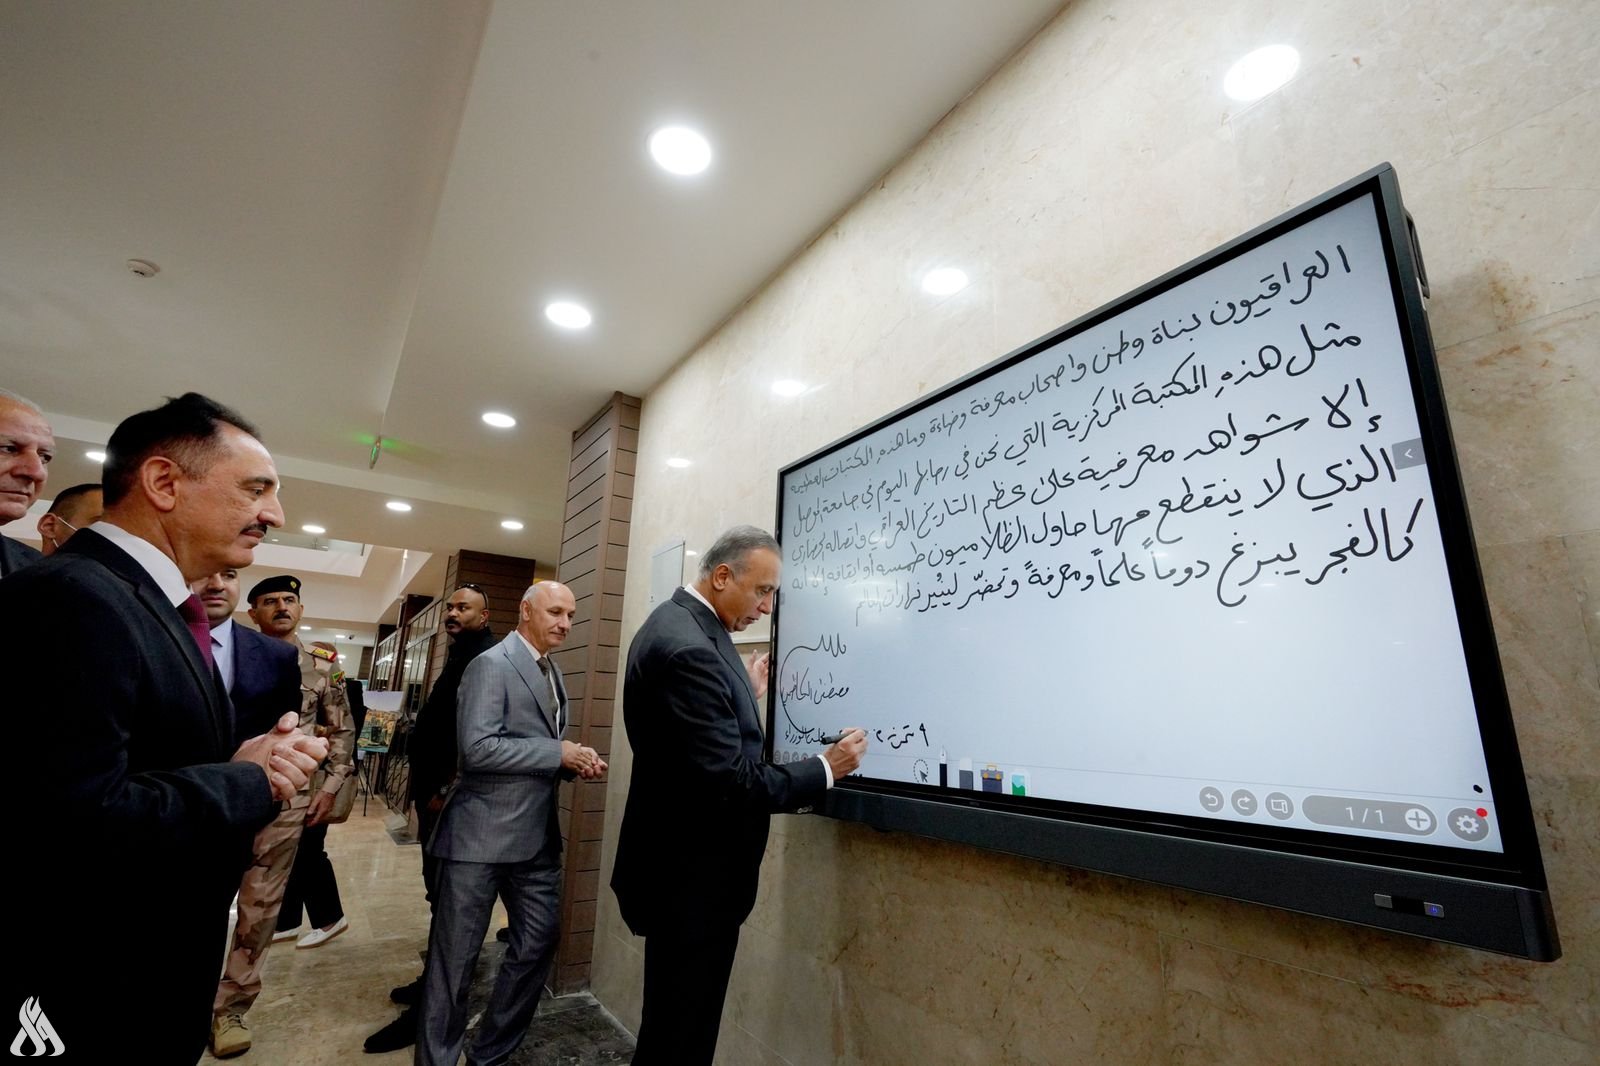 العراقيون بناة وطن واصحاب معرفة وضاءة وما هذهِ المكتبات العظيمة
مثل هذهِ المكتبة المركزية التي نحن في رحابها اليوم في جامعة الموصل
إلا شواهد معرفية على عظم التاريخ العراقي واتصاله الحضاري
الذي لا ينقطع مهما حاول الظلاميون طمسه أو ايقافه إلا انه
كالفجر يبزغ دوماً علماً ومعرفةً وتحضّر ليُنير العالم
مصطفى الكاظمي
مجلس الوزراء
٩ تموز ٢
1/1